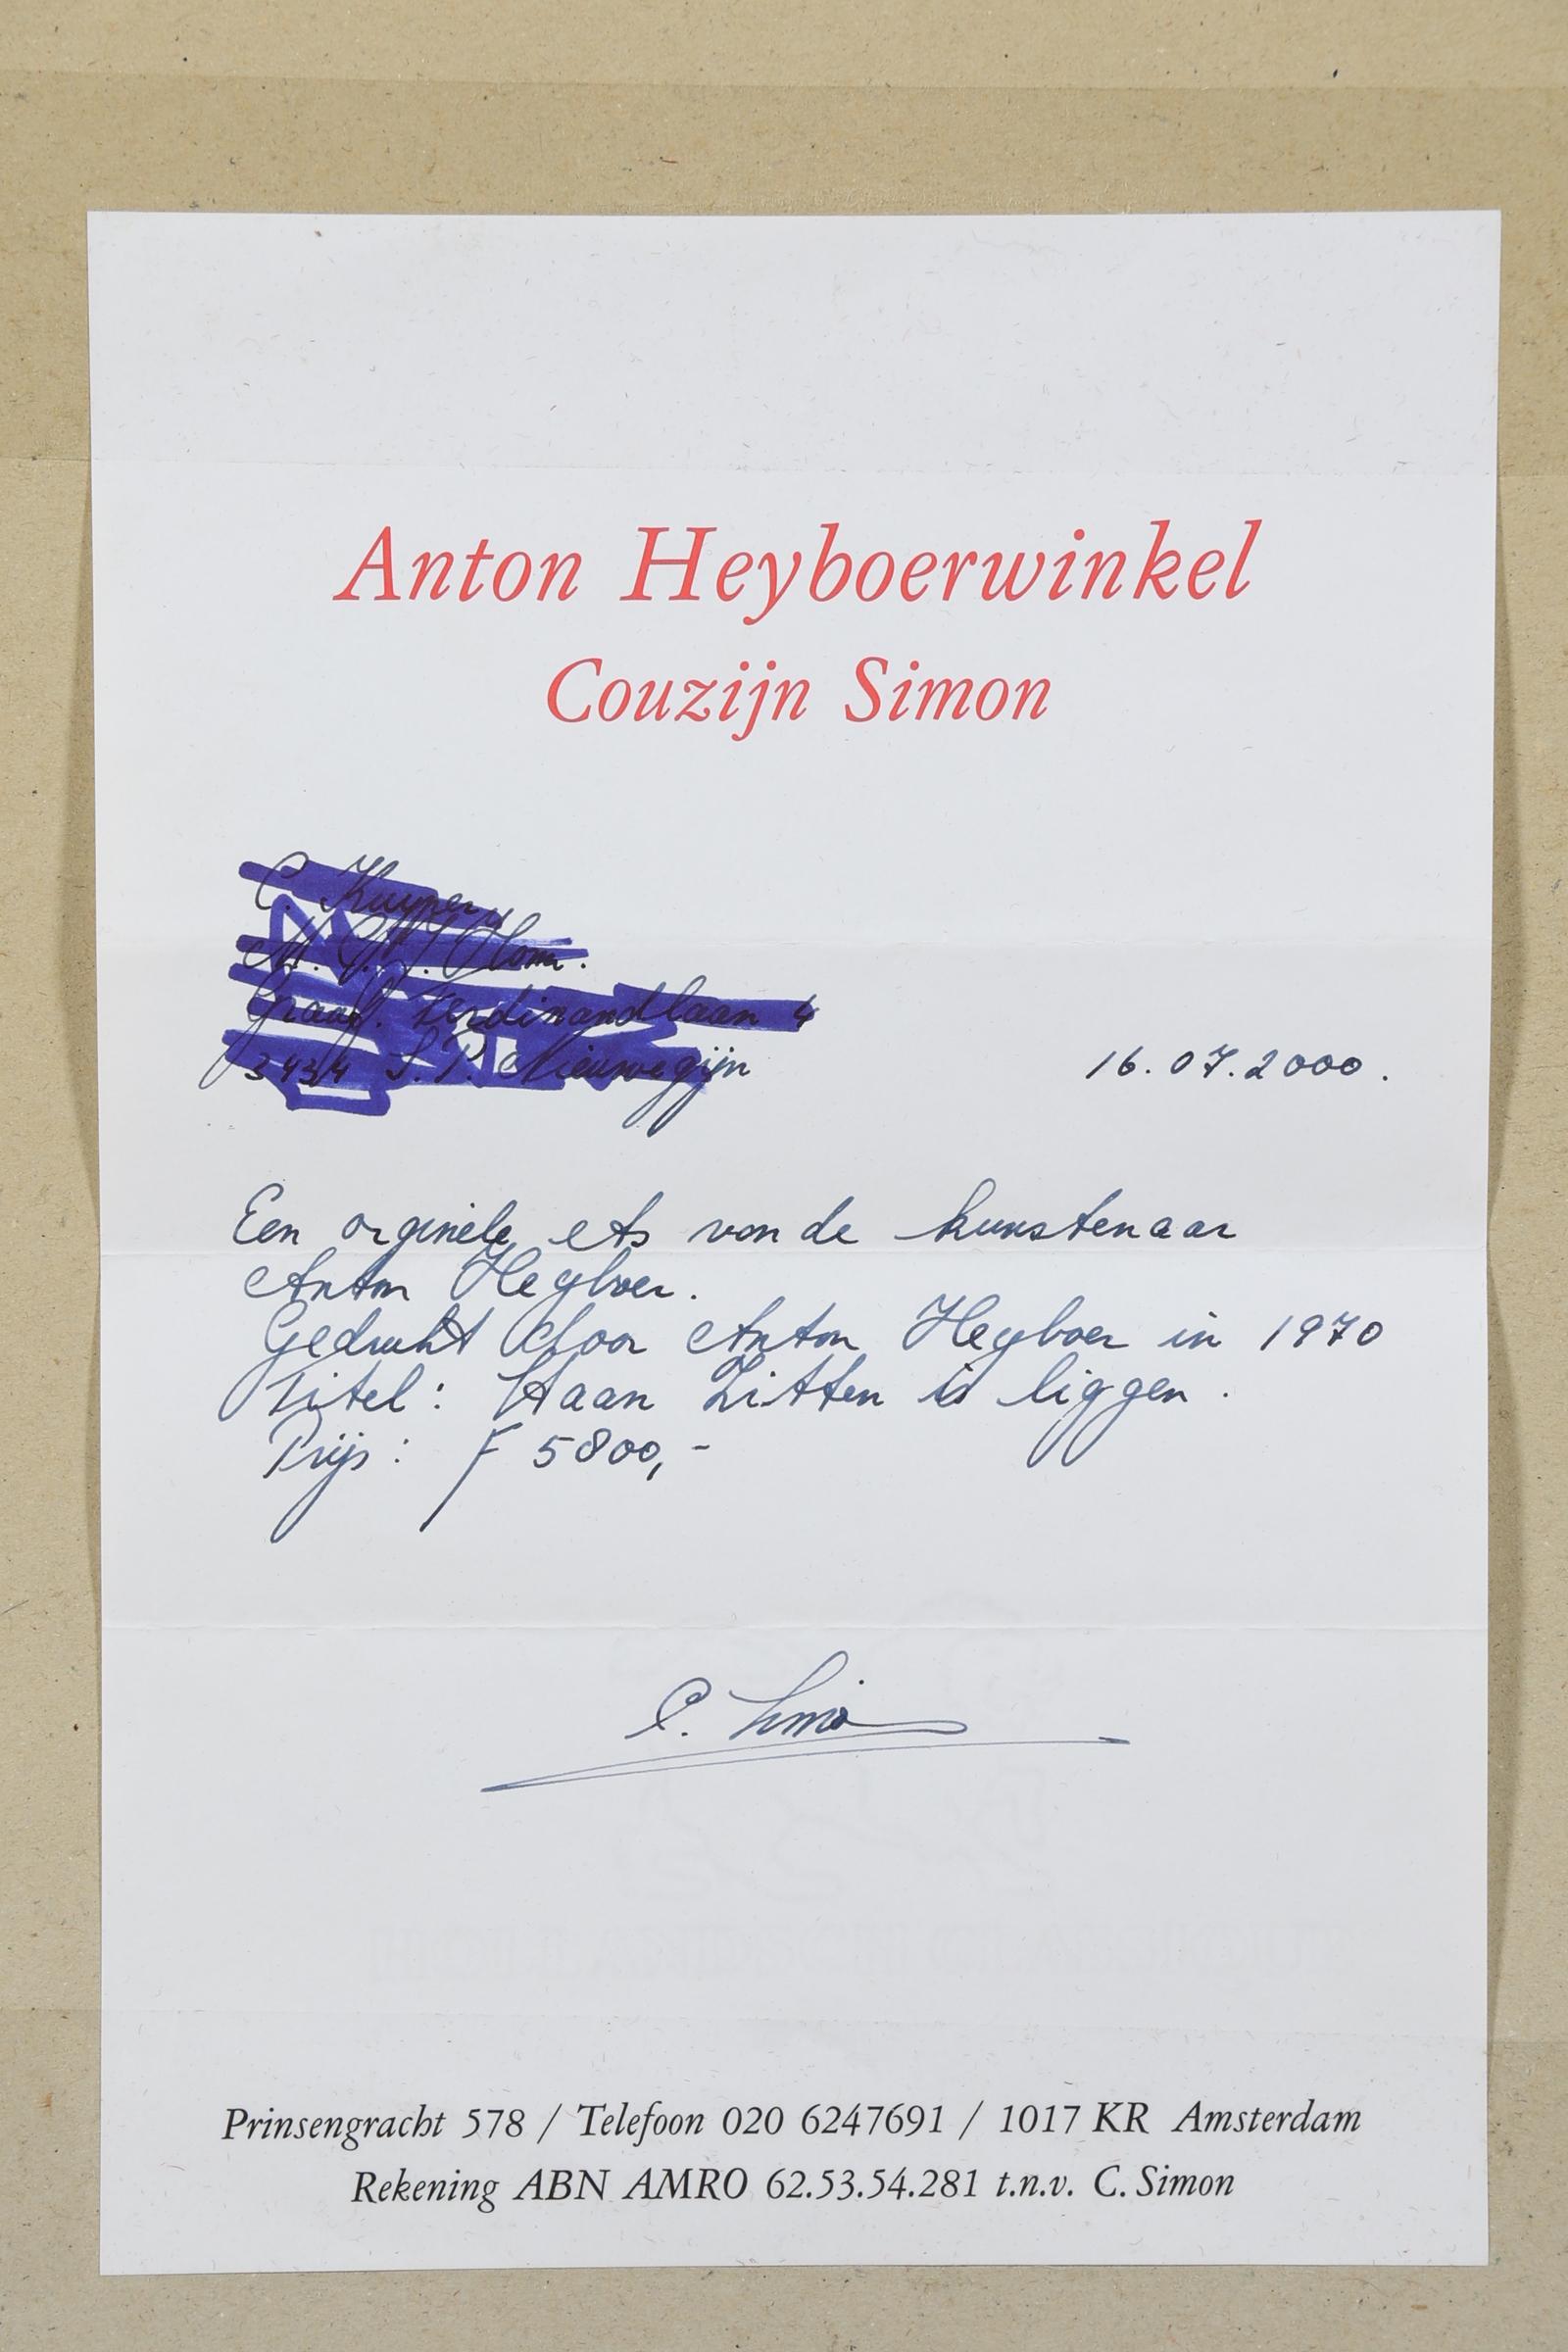 Anton Heyboerwinkel
Couzijn Simon
16.07.2000.
Een orginele ets van de kunstenaar
Anton Heyboer.
Gedrukt door Anton Heyboer in 1970
Titel: Haan Zitten is liggen.
Prijs: F 5800,-
C. Simon
Prinsengracht 578 / Telefoon 020 6247691 / 1017 KR Amsterdam
Rekening ABN AMRO 62.53.54.281 t.n.v. C. Simon